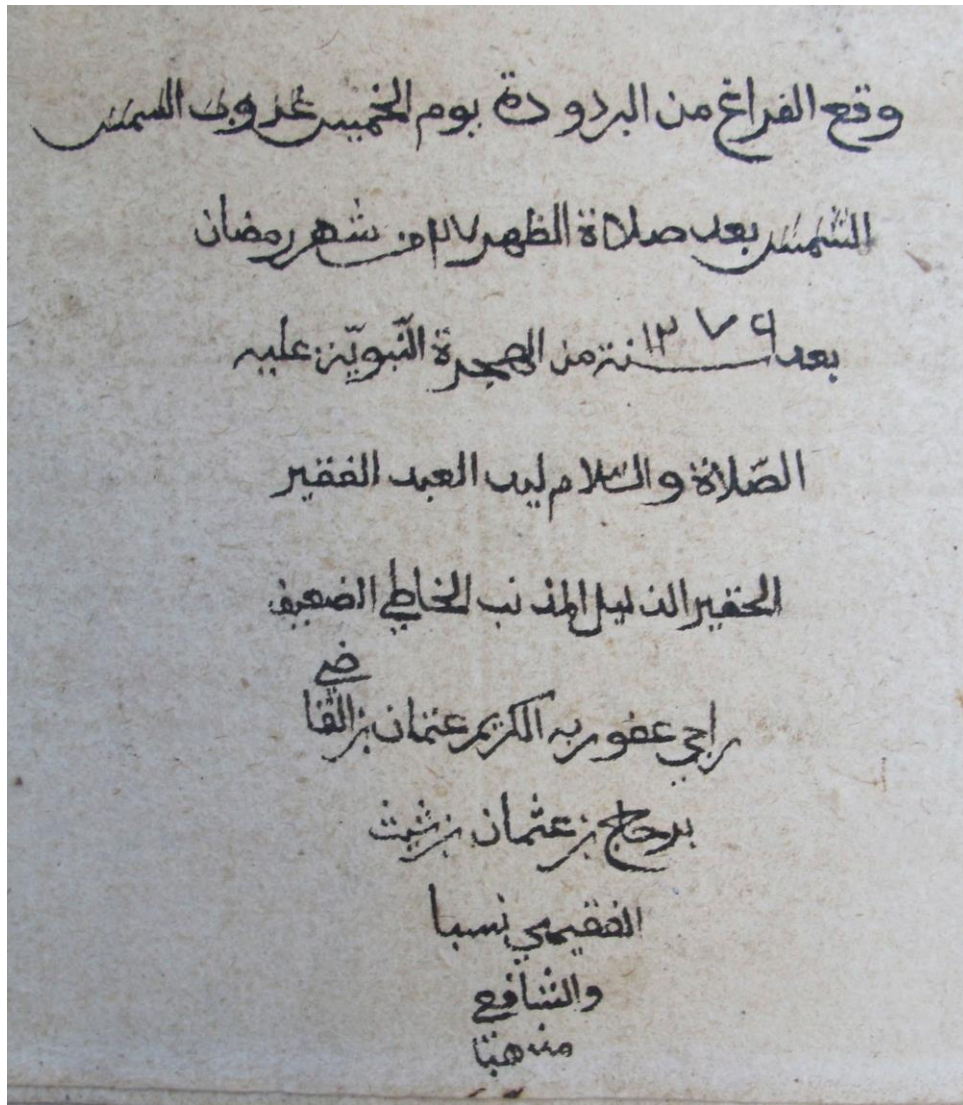 وقع الفراغ من البردودة يوم الخميس غروب الشمس
الشمس بعد صلاة الظهر ٢٧ من شهر رمضان
بعد ١٣٧٤ سنة من الهجرة النّبويّة عليه
الصّلاة والسّلام ليد العبد الفقير
الحقير الذليل المذنب الخاطي الضعيف
راجي عفو ربه الكريم عثمان بن القاضي
برحاج بن عثمان بن شيث
الفقيهي نسبا
والشافع
مذهبا